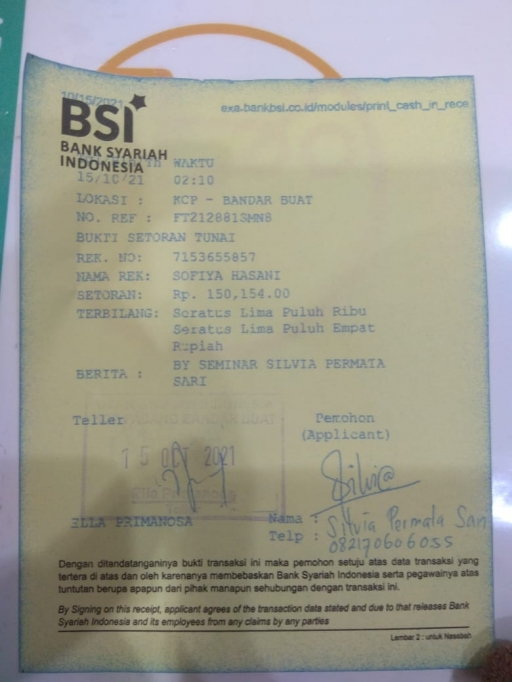 10/15/2021
exa.bankbsi.co.id/modules/print_cash_in_rece
BSI
BANK SYARIAH
INDONESIA
WAKTU
15/10/21 02:10
LOKASI : KCP - BANDAR BUAT
NO. REF : FT212881SMN8
BUKTI SETORAN TUNAI
REK. NO: 7153655857
NAMA REK: SOFIYA HASANI
SETORAN: Rp. 150,154.00
TERBILANG: Seratus Lima Puluh Ribu
Seratus Lima Puluh Empat
Rupiah
BERITA : BY SEMINAR SILVIA PERMATA
SARI
Teller Pemohon
(Applicant)
BANDAR BUAT
15 OCT 2021
Silvia
Ella Primanosa
ELLA PRIMANOSA
Nama : Silvia Permata Sari
Telp : 082170606035
Dengan ditandatanganinya bukti transaksi ini maka pemohon setuju atas data transaksi yang
tertera di atas dan oleh karenanya membebaskan Bank Syariah Indonesia serta pegawainya atas
tuntutan berupa apapun dari pihak manapun sehubungan dengan transaksi ini.
By Signing on this receipt, applicant agrees of the transaction data stated and due to that releases Bank
Syariah Indonesia and its employees from any claims by any parties
Lembar 2 : untuk Nasabah